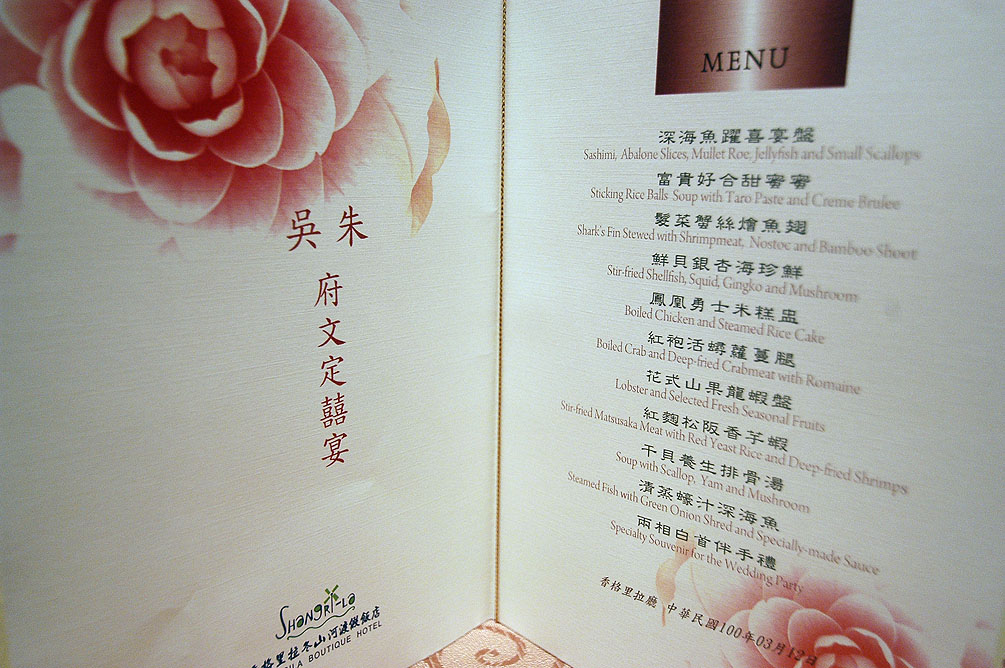 吳 朱
府
文
定
囍
宴
Shangri-La
香格里拉冬山河渡假飯店
BOUTIQUE HOTEL
MENU
深海魚躍喜宴盤
Sashimi, Abalone Slices, Mullet Roe, Jellyfish and Small Scallops
富貴好合甜蜜蜜
Sticking Rice Balls Soup with Taro Paste and Creme Brulee
髮菜蟹絲燴魚翅
Shark's Fin Stewed with Shrimpmeat, Nostoc and Bamboo Shoot
鮮貝銀杏海珍鮮
Stir-fried Shellfish, Squid, Gingko and Mushroom
鳳凰勇士米糕盅
Boiled Chicken and Steamed Rice Cake
紅袍活蟳蘿蔓腿
Boiled Crab and Deep-fried Crabmeat with Romaine
花式山果龍蝦盤
Lobster and Selected Fresh Seasonal Fruits
紅麴松阪香芋蝦
Stir-fried Matsusaka Meat with Red Yeast Rice and Deep-fried Shrimps
干貝養生排骨湯
Soup with Scallop, Yam and Mushroom
清蒸蠔汁深海魚
Steamed Fish with Green Onion Shred and Specially-made Sauce
兩相白首伴手禮
Specialty Souvenir for the Wedding Party
香格里拉廳 中華民國100年03月12日